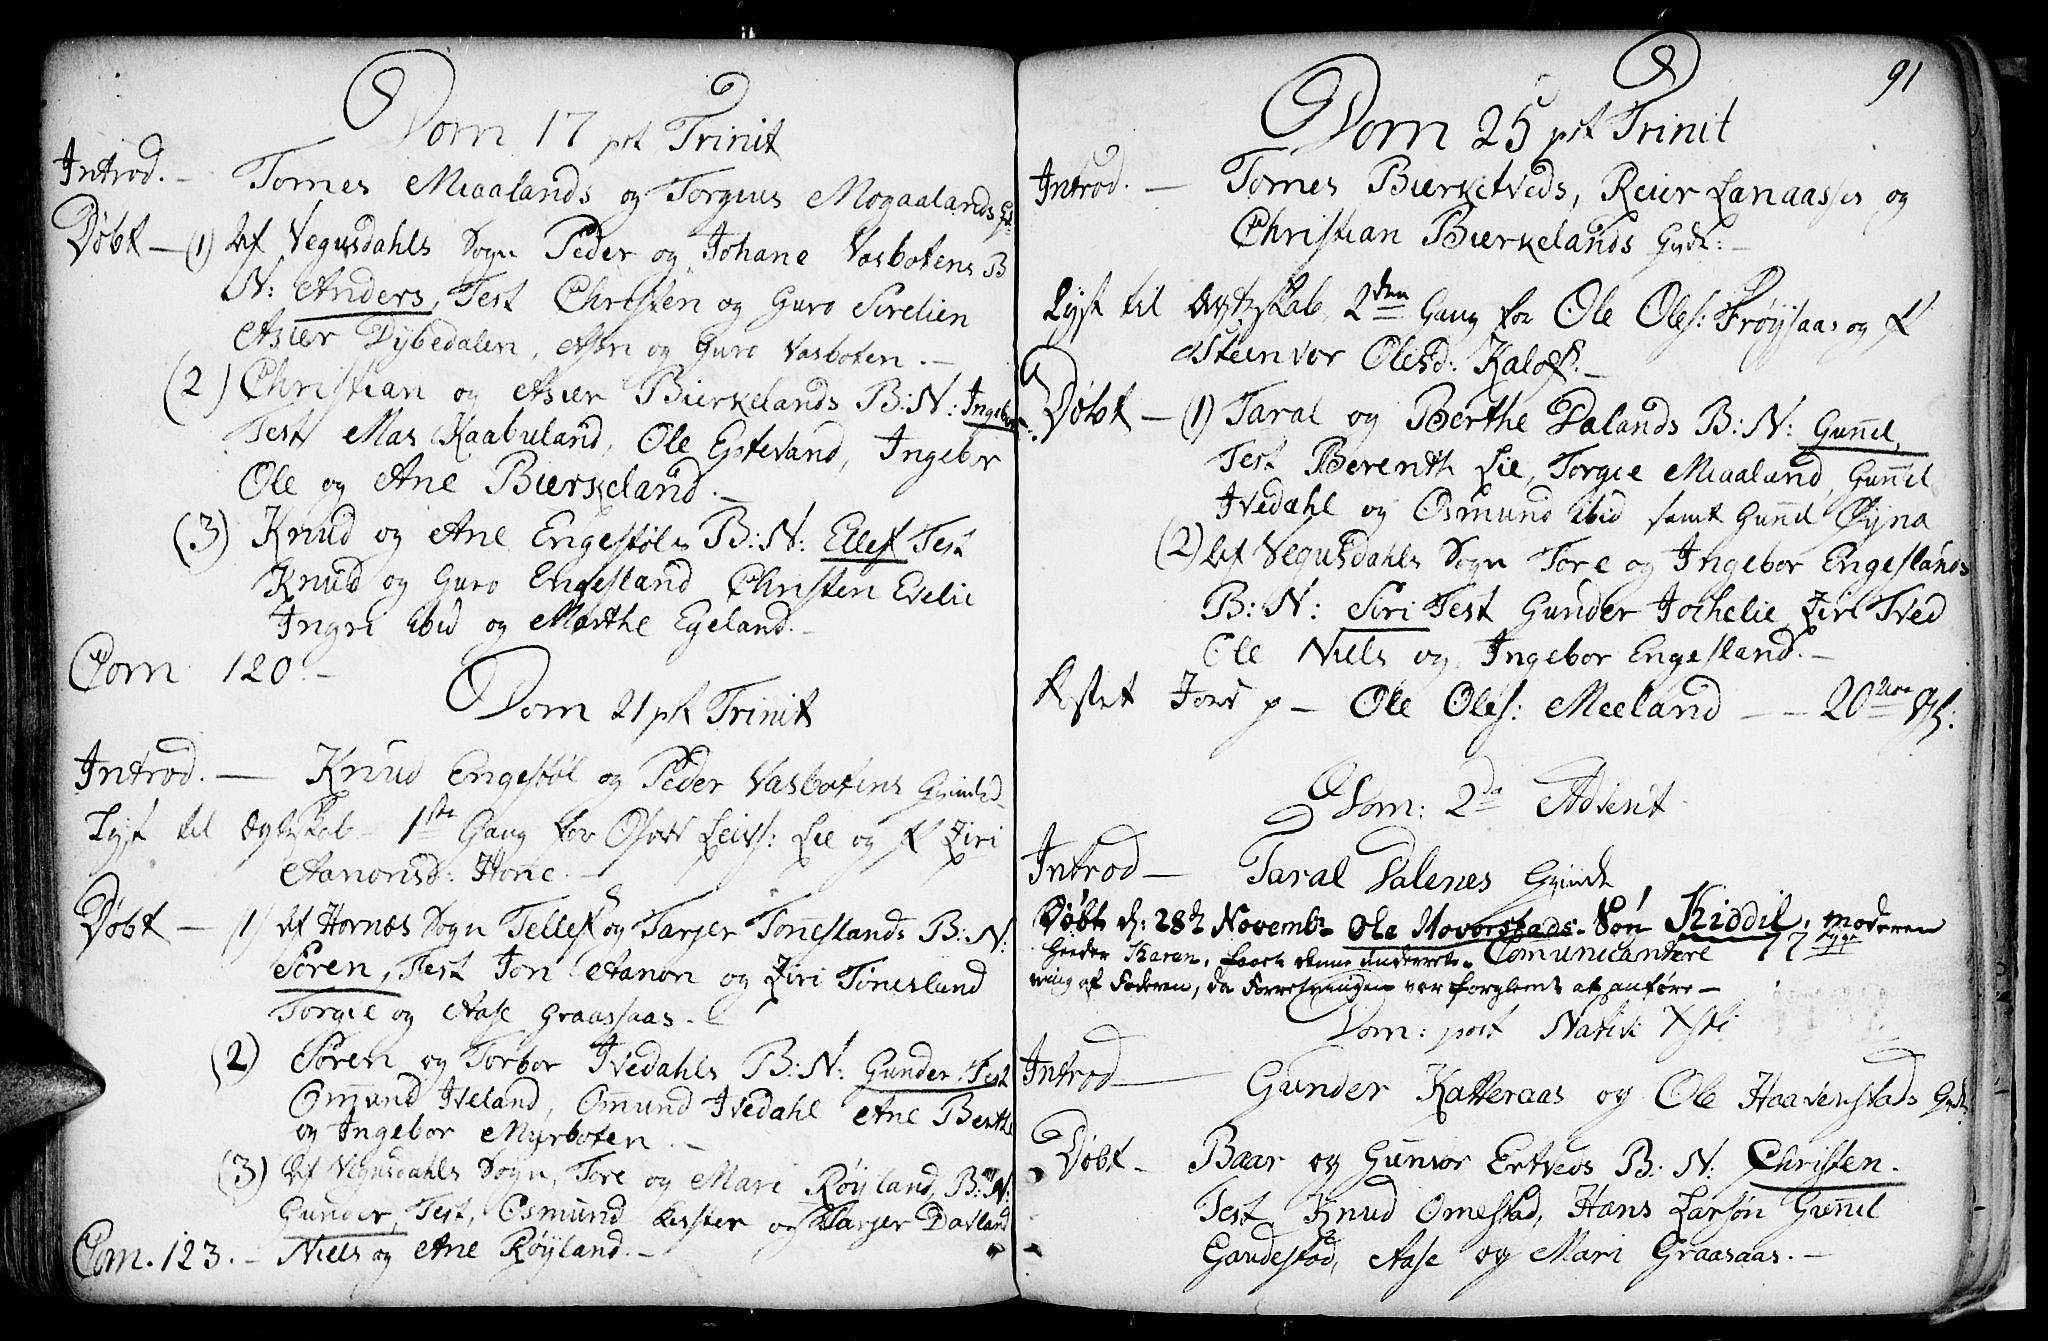 Dom 17 pst Trinit
Introd. – Tomes Miaalands og Torgius Mogaalands
Døbt – (1) Af Vegusdahls Sogn Peder og Johane Vasbotens B
N: Anders, Test Christen og Guro Sirelien
Asier Dybedalen, og Guro Vasboten. –
(2) Christian og Asier Bierkelands B: N: Ingebor
Test Mas Kaabuland, Ole Egtevand, Ingebor
Ole og Ane Bierkeland. –
(3) Knud og Ane Engestøls B: N: Ellef Test
Knud og Guro Engesland Christen Evelie
Ingri ibid og Marthe Egeland. –
Com 120. –
Dom 21 pst Trinit
Introd. – Knud Engestøl og Peder Vasbotens Qvinder
Lyst til Ægteskab 1ste Gang for Osvor Leivs: Lie og P Ziri
Aanonsd: Hoñe. –
Døbt – (1) Af Hornæs Sogn Tellef og Tarjer Toñeslands B: N:
Sören, Test Jon Aanon og Ziri Tonesland
Torgie og Aase Graassaas –
(2) Sören og Torbor Ivedahls B: N: Gunder, Test
Omund Iveland, Omund Ivedahl Ane Berthe
og Ingebor Myrboten. –
(3) Af Vegusdahls Sogn, Tore og Mari Røyland, B: N:
Gunder, Test, Osmund og Tarjer Davland
Com. 123. – Niels og Ane Røyland. –
91
Dom 25 pst Trinit
Introd. – Tomes Bierketveds, Reier Lanaasses og
Christian Bierkelands Qvdr: –
Lyst til Ægteskab 2den Gang for Ole Oles: Frøysaas og P
Steinvor Olesd: Kalos. –
Døbt – (1) Taral og Berthe Dalands B: N: Guñil,
Test Berenth Lie, Torgie Miaaland, Guñil
Ivedahl og Osmund ibid samt Guñil Øyna
(2) Af Vegusdahls Sogn Tore og Ingebor Engeslands
B: N: Siri Test Gunder Jochelie, Ziri Tved
Ole Niels og Ingebor Engesland. –
Kastet Jord p – Ole Oles: Meeland – – 20
Dom: 2da Advent
Introd – Taral Dalenes Qvinde
Døbt d: 28de Novembr Ole Hovorstads Søn Kiddil, moderen
heeder Karan, faaet denne underret- Comunicantere 77
ning af Faderen, da Forretningen var forglemt at anføre –
Dom: post Nativ: Xsti
Introd – Gunder Katteraas og Ole Haaverstads Qvdr
Døbt – Baar og Gunvor Ertveds B: N: Christen.
Test Knud Omestad, Hans Larsøn Guñil
Gaudestad, Aase og Mari Graasaas. –